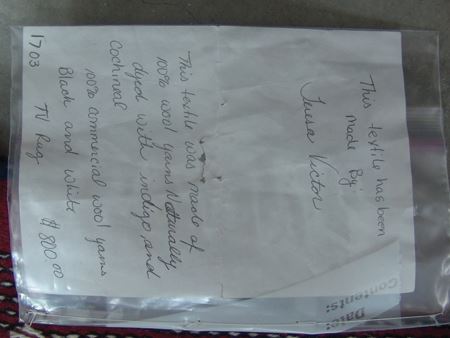 This textile has been
made By:
Teresa Victor
This textile was made of
100% wool yarns Naturally
dyed with indigo, and
Cochineal
100% commercial wool yarns
Black and white
1703 TV Rug $800.00
Contents:
Date: